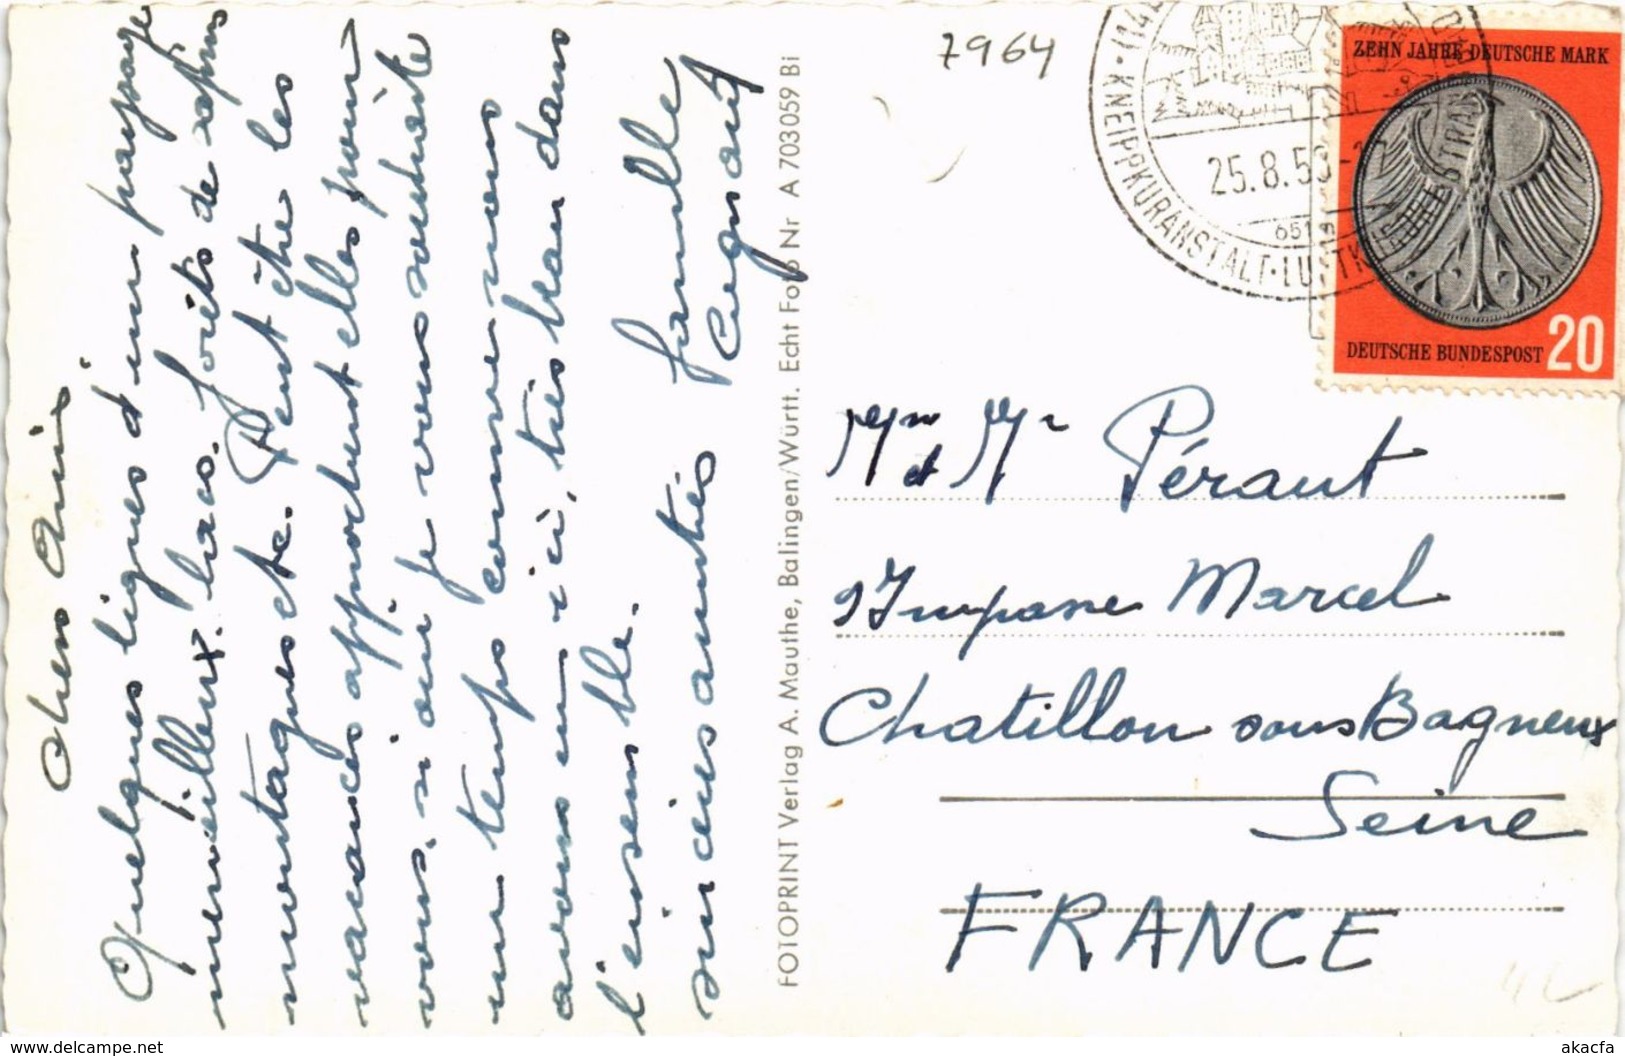 Chers Amis.
Quelques lignes d'un paysage
merveilleux. lacs. forêts de sapins
montagnes etc. Peut être les
vacances apportent elles pour
vous. si oui je vous souhaite
un temps comme nous
avons eu ici, très beau dans
l'ensemble.
sincères amitiés
famille
FOTOPRINT Verlag A. Mauthe, Balingen/Württ. Echt Foto Nr A 703059 Bi
7964
KNEIPPKURANSTALT · LUFTKURORT
25.8.58
ZEHN JAHRE DEUTSCHE MARK
DEUTSCHE BUNDESPOST 20
Mme et Mr Péraut
9 Impasse Marcel
Chatillon sous Bagneux
Seine
FRANCE
delcampe.net
akacfa